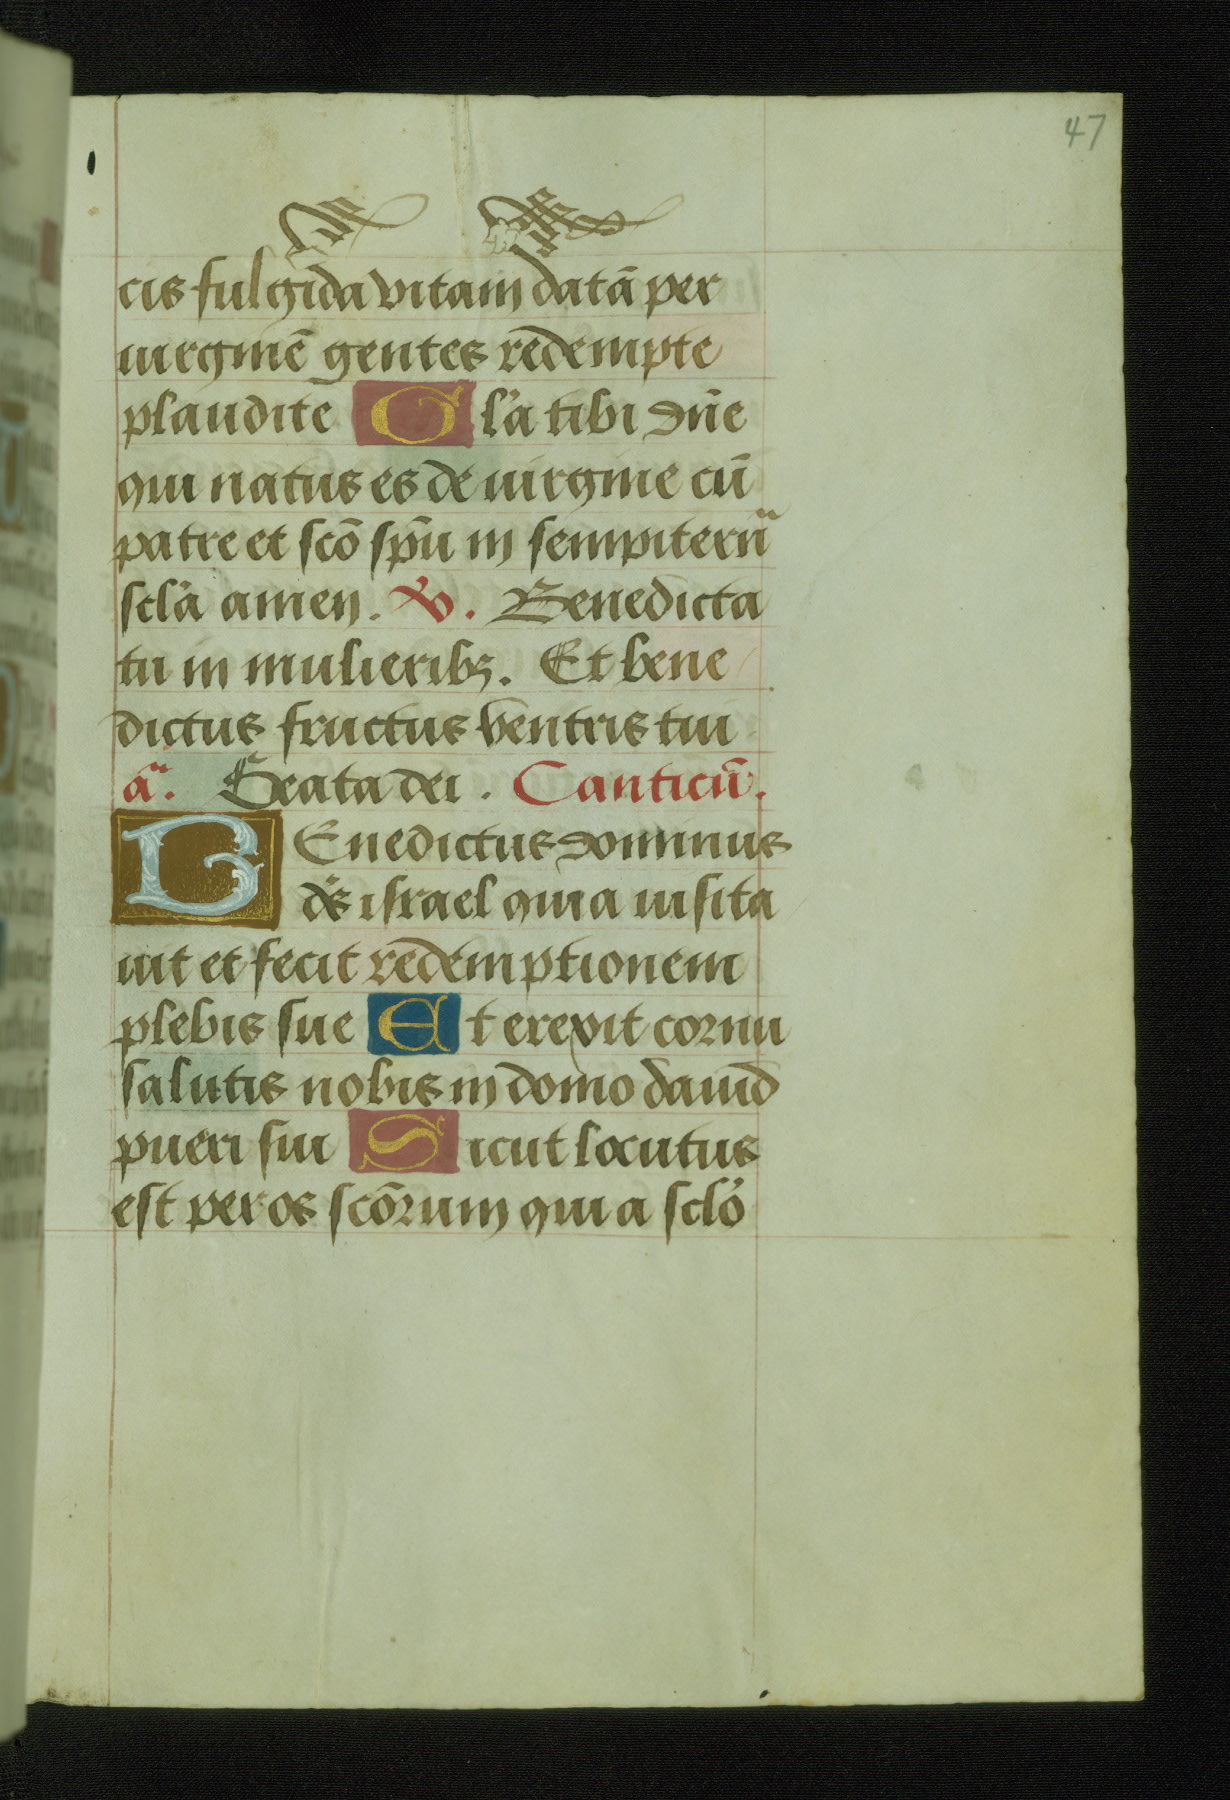 47
cis fulgida vitam datā per
uirginē gentes redempte
plaudite Gla tibi dn̄e
qui natus es de uirgine cū
patre et scō spū in sempiternᷓ
scla amen. ℣. Benedicta
tu in mulieribꝫ. Et bene
dictus fructus ventris tui
aᷓ. Beata dei. Canticū.
BEnedictus dominus
ds israel quia uisita
uit et fecit redemptionem
plebis sue Et erexit cornu
salutis nobis in domo dauid
pueri sui Sicut locutus
est per os scōrum qui a sclo